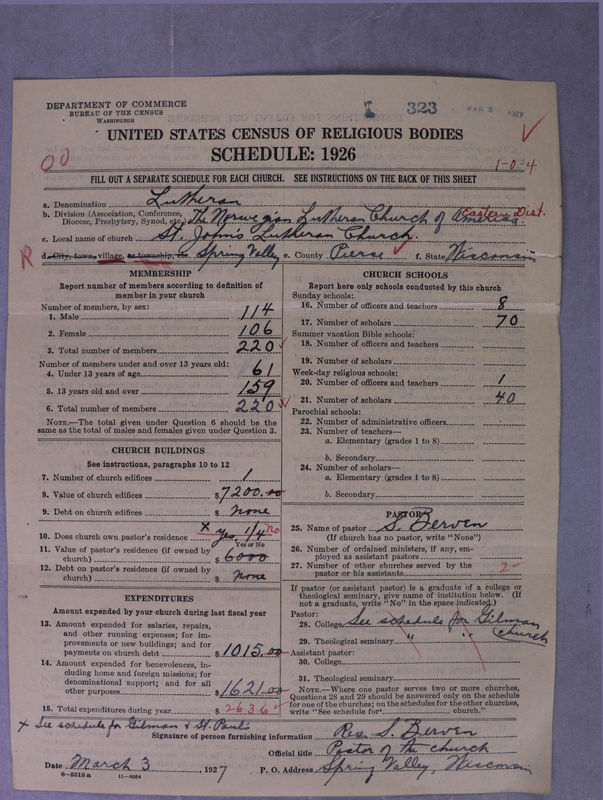 DEPARTMENT OF COMMERCE
BUREAU OF THE CENSUS
WASHINGTON
I 323 MAR 5 1927
UNITED STATES CENSUS OF RELIGIOUS BODIES
SCHEDULE: 1926
00
1-0-4
FILL OUT A SEPARATE SCHEDULE FOR EACH CHURCH. SEE INSTRUCTIONS ON THE BACK OF THIS SHEET
a. Denomination Lutheran
b. Division (Association, Conference, Diocese, Presbytery, Synod, etc.) The Norwegian Lutheran Church of America. Eastern Dist.
c. Local name of church St. John's Lutheran Church.
R d. City, town, village, or township, etc. Spring Valley e. County Pierce f. State Wisconsin
MEMBERSHIP
Report number of members according to definition of
member in your church
Number of members, by sex:
1. Male 114
2. Female 106
3. Total number of members 220
Number of members under and over 13 years old:
4. Under 13 years of age 61
5. 13 years old and over 159
6. Total number of members 220
NOTE.—The total given under Question 6 should be
same as the total of males and females given under Question 3.
CHURCH BUILDINGS
See instructions, paragraphs 10 to 12
7. Number of church edifices 1
8. Value of church edifices $7200.00
9. Debt on church edifices $ None
10. Does church own pastor's residence x yes, 1/4 no
Yes or No
11. Value of pastor's residence (if owned by
church) $ 6000
12. Debt on pastor's residence (if owned by
church) $ None
EXPENDITURES
Amount expended by your church during last fiscal year
13. Amount expended for salaries, repairs,
and other running expenses; for im-
provements or new buildings; and for
payments on church debt $1015.00
14. Amount expended for benevolences, in-
cluding home and foreign missions; for
denominational support; and for all
other purposes $1621.00
15. Total expenditures during year $2636
CHURCH SCHOOLS
Report here only schools conducted by this church
Sunday schools:
16. Number of officers and teachers 8
17. Number of scholars 70
Summer vacation Bible schools:
18. Number of officers and teachers
19. Number of scholars
Week-day religious schools:
20. Number of officers and teachers 1
21. Number of scholars 40
Parochial schools:
22. Number of administrative officers
23. Number of teachers—
a. Elementary (grades 1 to 8)
b. Secondary
24. Number of scholars—
a. Elementary (grades 1 to 8)
b. Secondary
PASTOR
25. Name of pastor S. Berven
(If church has no pastor, write "None")
26. Number of ordained ministers, if any, em-
ployed as assistant pastors
27. Number of other churches served by the
pastor or his assistants 2
If pastor (or assistant pastor) is a graduate of a college or
theological seminary, give name of institution below. (If
not a graduate, write "No" in the space indicated.)
Pastor:
28. College See schedule for Gilman
29. Theological seminary " " church
Assistant pastor:
30. College
31. Theological seminary
NOTE.—Where one pastor serves two or more churches,
Questions 28 and 29 should be answered only on the schedule
for one of the churches; on the schedules for the other churches,
write "See schedule for church."
x See schedule for Gilman & St. Pauls
Signature of person furnishing information Rev. S. Berven
Official title Pastor of the church
Date March 3, 1927 P. O. Address Spring Valley, Wisconsin
8—5519 a 11—9084